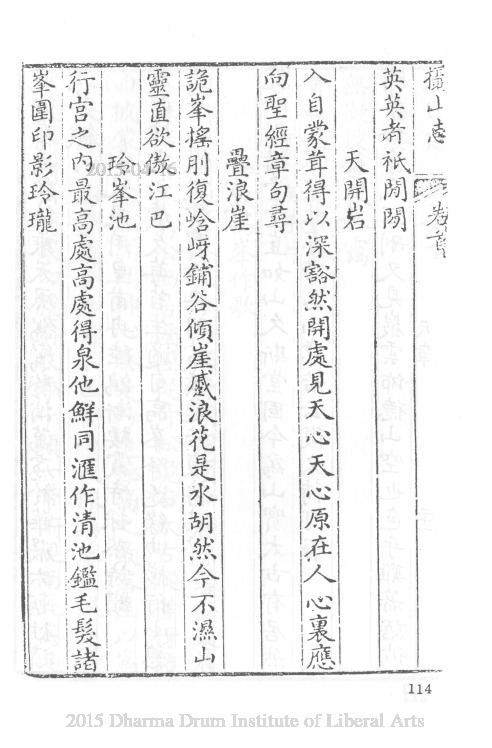 攝山志 卷首
英英者祇閒閒
天開岩
入自蒙茸得以深豁然開處見天心天心原在人心裏應
向聖經章句尋
疊浪崖
詭峯搖刖復峆岈鋪谷傾崖蹙浪花是水胡然今不濕山
靈直欲傲江巴
玲峯池
行宮之內最高處高處得泉他鮮同滙作清池鑑毛髮諸
峯圍印影玲瓏
114
2015 Dharma Drum Institute of Liberal Arts